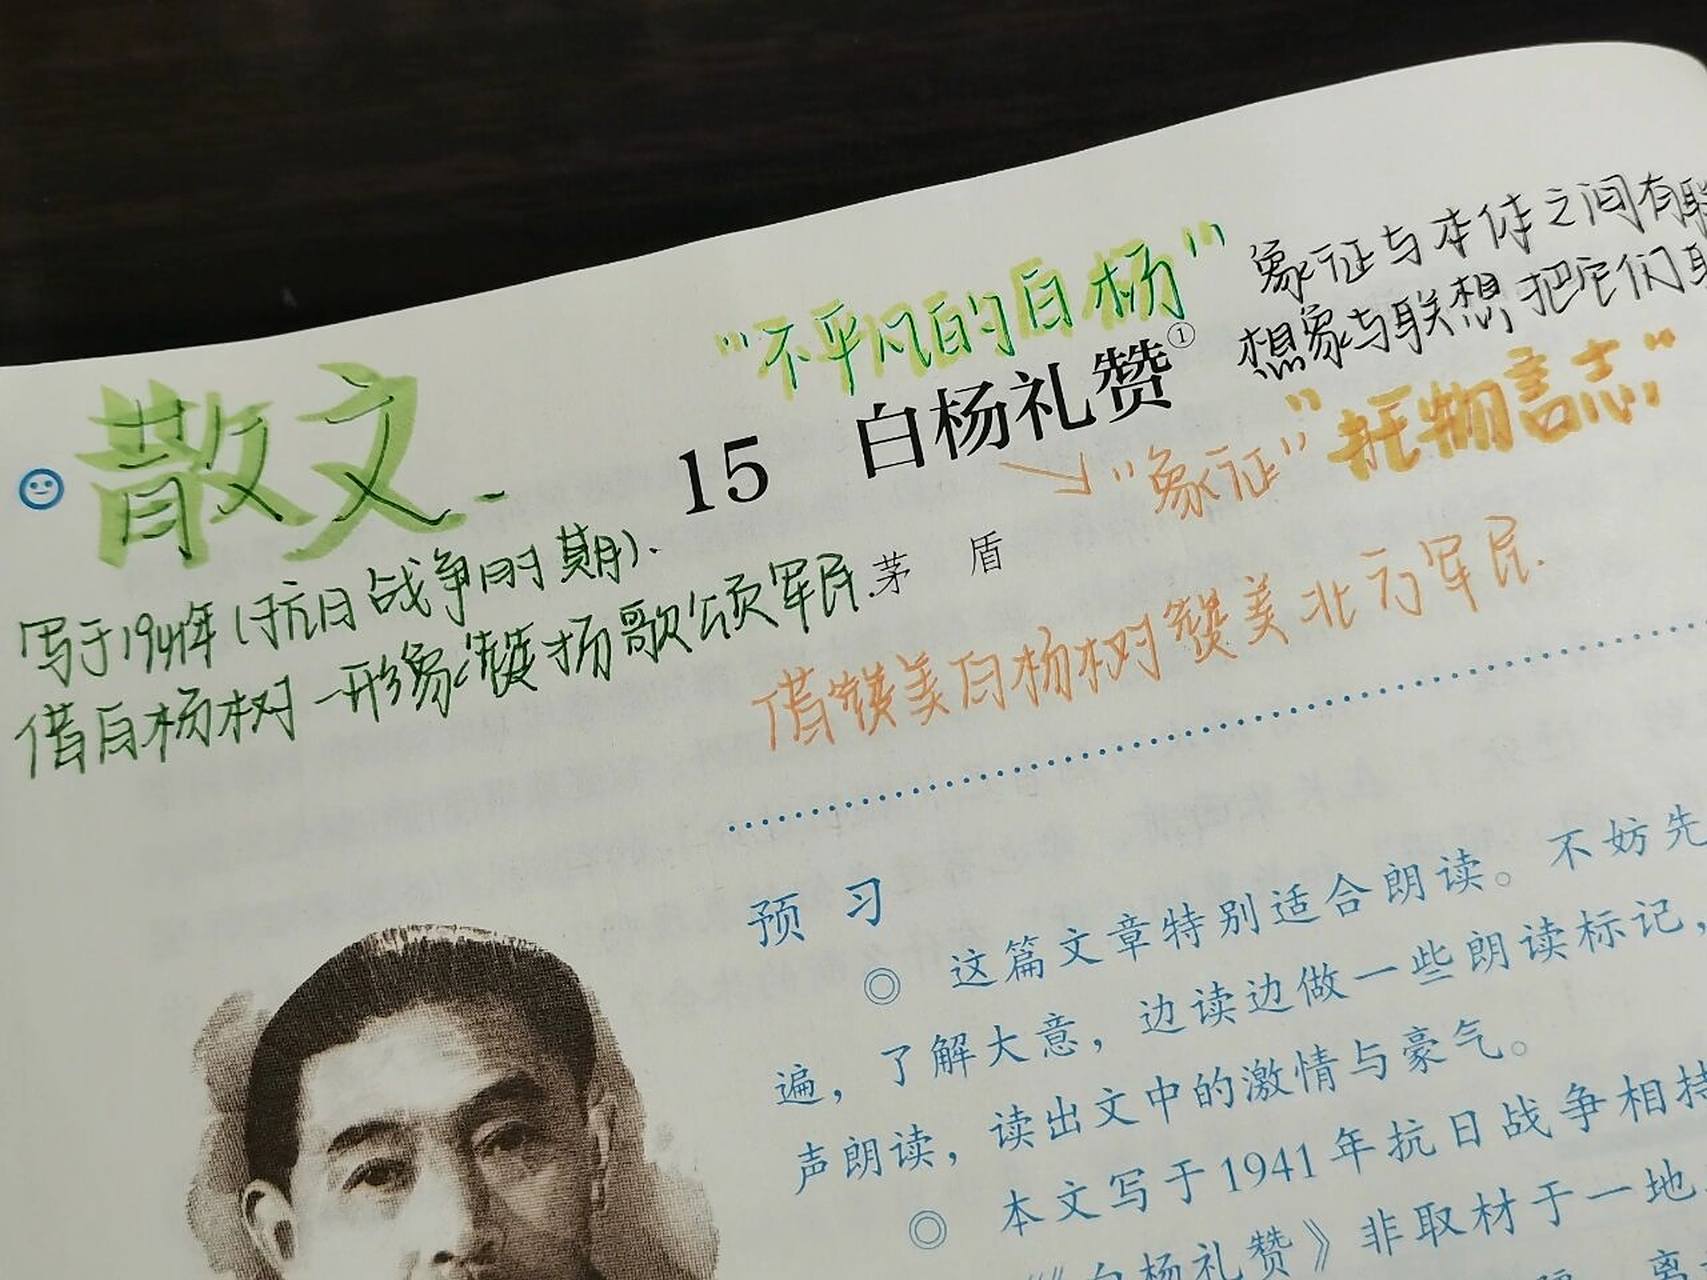 "不平凡的白杨"
象征与本体之间有联
想象与联想把它们
散文.
15 白杨礼赞①
"象征" "托物言志"
写于1941年(抗日战争时期).
茅 盾
借白杨树一形象赞扬歌颂军民.
借赞美白杨树赞美北方军民.
预 习
◎ 这篇文章特别适合朗读。不妨先
遍，了解大意，边读边做一些朗读标记，
声朗读，读出文中的激情与豪气。
◎ 本文写于1941年抗日战争相持
《白杨礼赞》非取材于一地
离